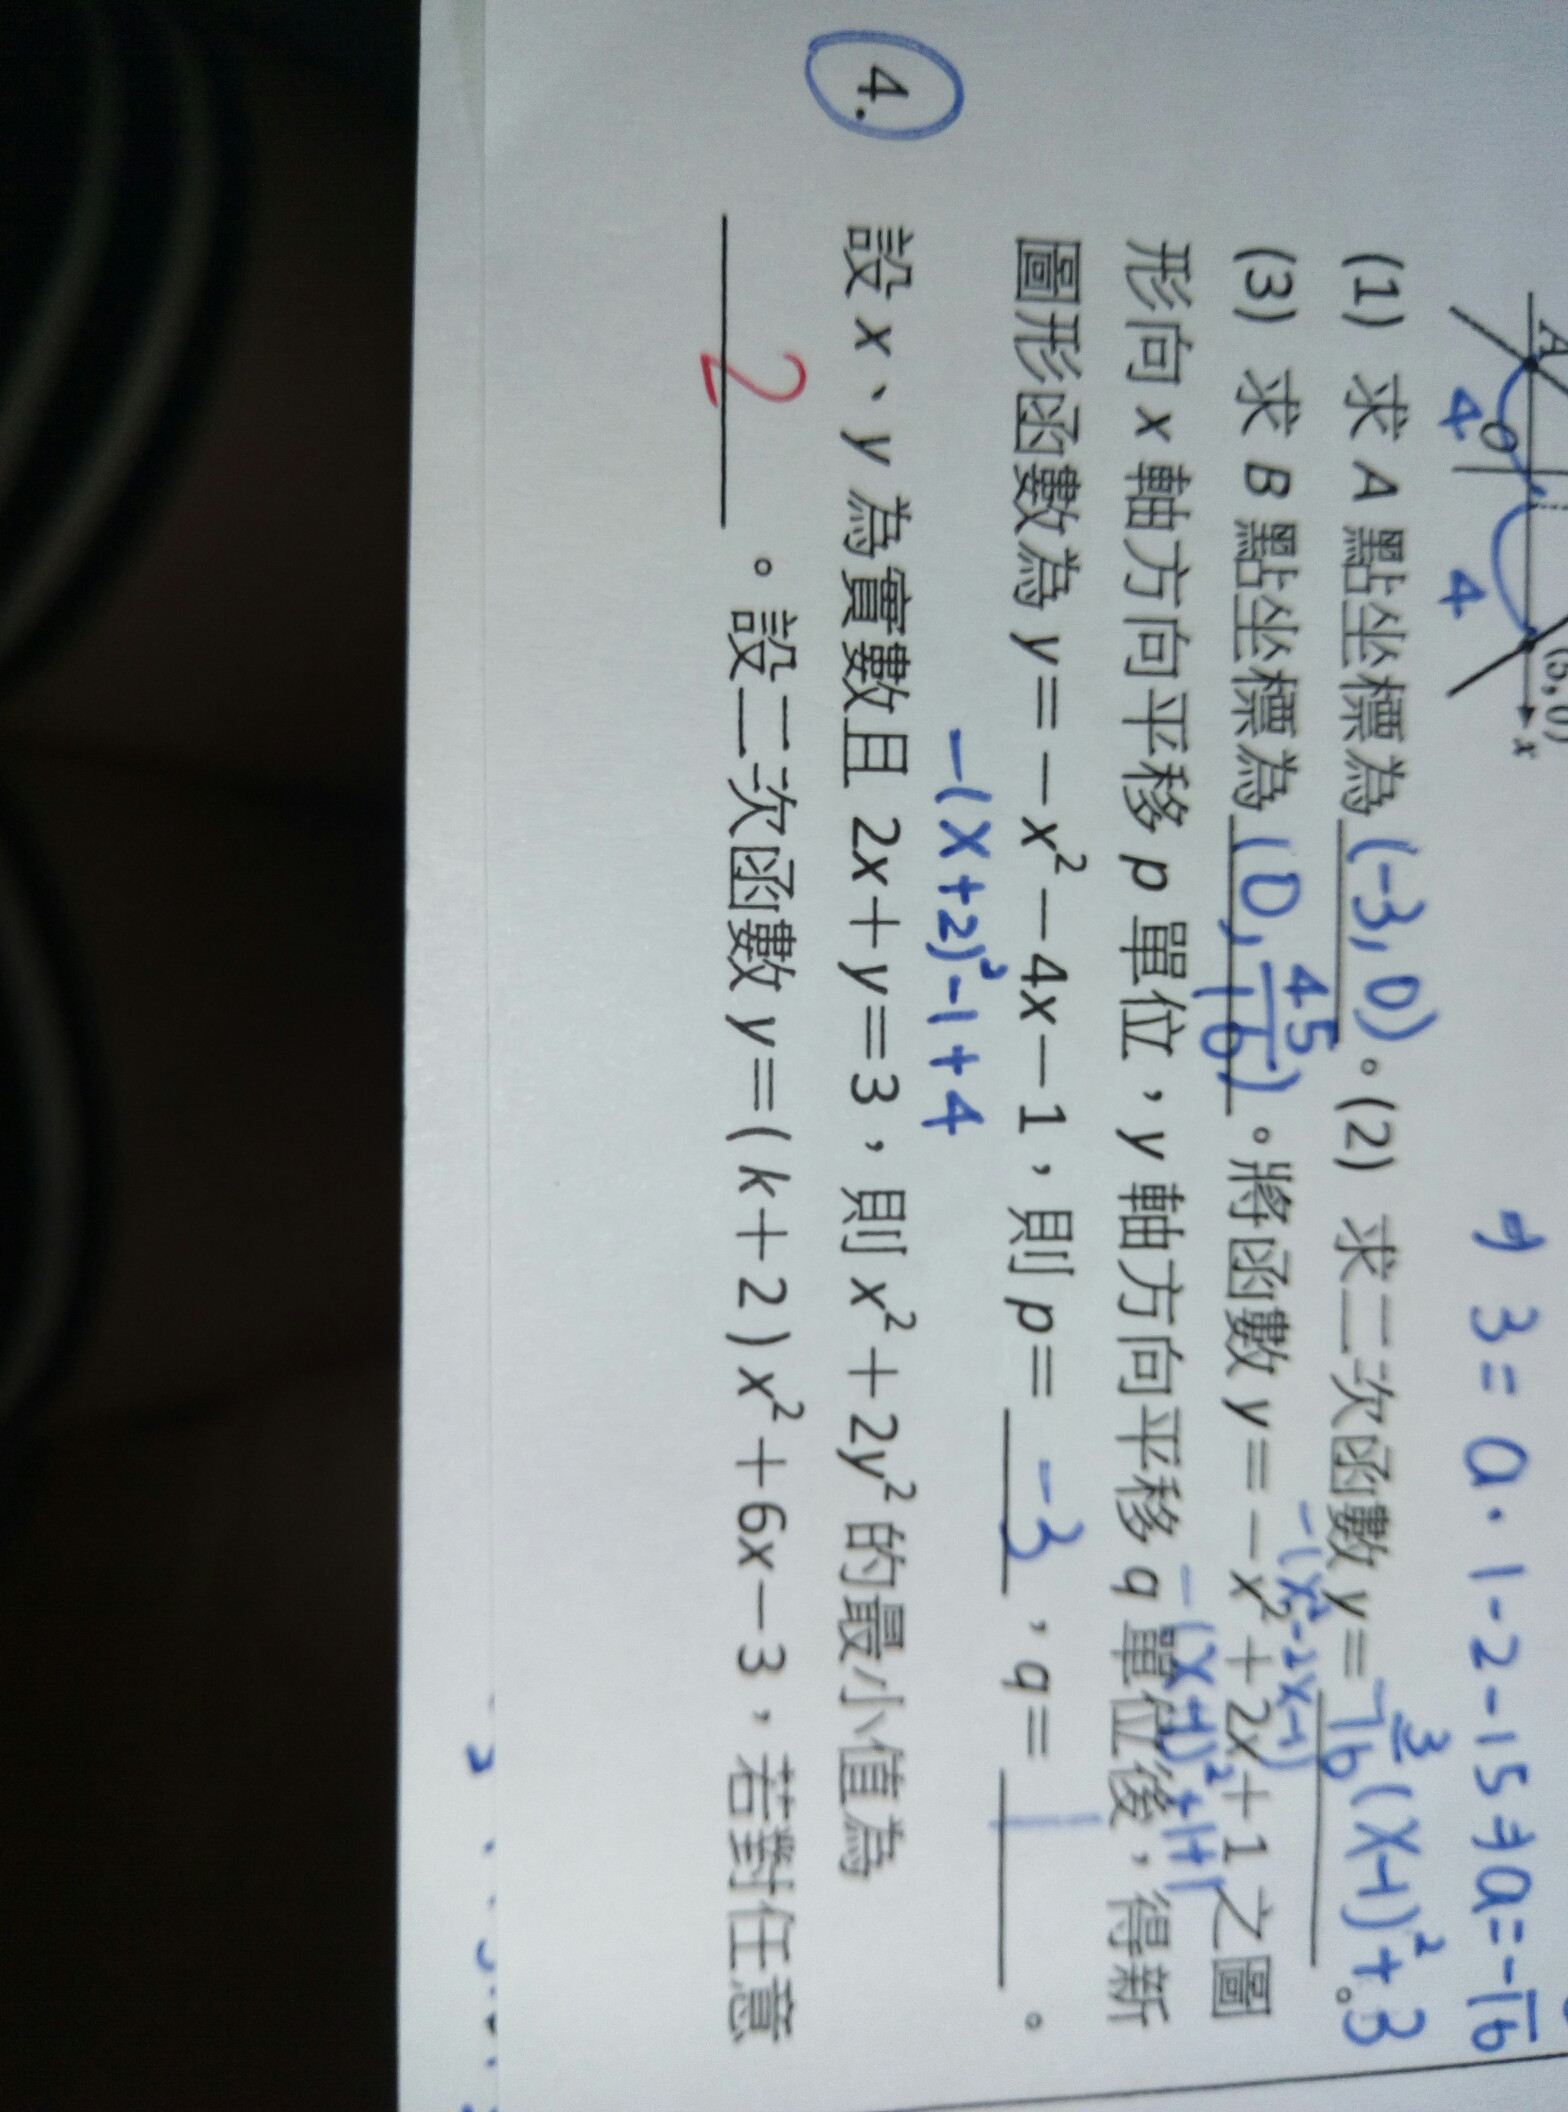 ⇒ 3 = a · 1 - 2 - 15 ⇒ a = -
16
A
O
(5, 0)
x
4
4
(1) 求 A 點坐標為 (-3, 0)。(2) 求二次函數 y= -3/16 (x-1)² + 3。
(3) 求 B 點坐標為 (0, 45/16)。將函數 y=－x²＋2x＋1 之圖
形向 x 軸方向平移 p 單位，y 軸方向平移 q 單位後，得新
-(x-1)²+1+1
圖形函數為 y=－x²－4x－1，則 p= -3 ，q= 1 。
-(x+2)²-1+4
4. 設 x、y 為實數且 2x＋y＝3，則 x²＋2y² 的最小值為
2 。設二次函數 y＝(k＋2)x²＋6x－3，若對任意